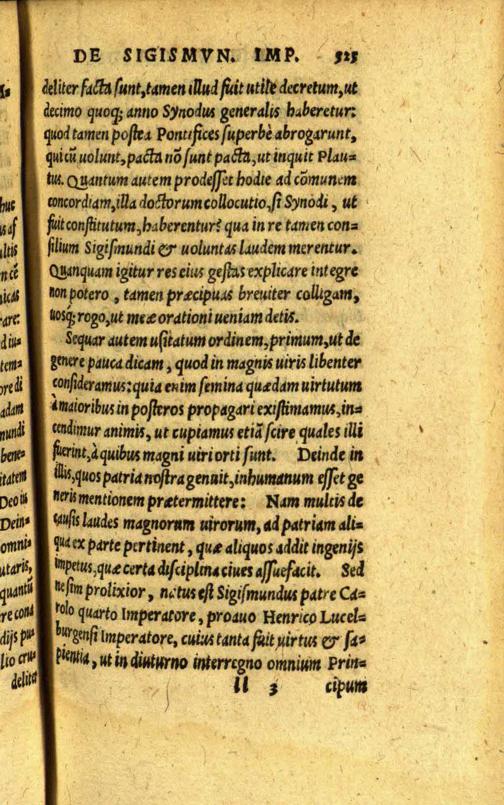 DE SIGISMVN. IMP. 525
deliter facta sunt, tamen illud fuit utile decretum, ut
decimo quoq; anno Synodus generalis haberetur:
quod tamen postea Pontifices superbè abrogarunt,
qui cũ uolunt, pacta nõ sunt pacta, ut inquit Plau=
tus. Quantum autem prodesset hodie ad cõmunem
concordiam, illa doctorum collocutio, si Synodi, ut
fuit constitutum, haberentur? qua in re tamen con=
silium Sigismundi & uoluntas laudem merentur.
Quanquam igitur res eius gestas explicare integre
non potero, tamen præcipuas breuiter colligam,
uosq; rogo, ut meæ orationi ueniam detis.
Sequar autem usitatum ordinem, primum, ut de
genere pauca dicam, quod in magnis uiris libenter
consideramus: quia enim semina quædam uirtutum
à maioribus in posteros propagari existimamus, in=
cendimur animis, ut cupiamus etiã scire quales illi
fuerint, à quibus magni uiri orti sunt. Deinde in
illis, quos patria nostra genuit, inhumanum esset ge
neris mentionem prætermittere: Nam multis de
causis laudes magnorum uirorum, ad patriam ali=
qua ex parte pertinent, quæ aliquos addit ingenijs
impetus, quæ certa disciplina ciues assuefacit. Sed
ne sim prolixior, natus est Sigismundus patre Ca=
rolo quarto Imperatore, proauo Henrico Lucel=
burgensi Imperatore, cuius tanta fuit uirtus & sa=
pientia, ut in diuturno interregno omnium Prin=
ll 3 cipum
hue
ultis
nicas
tem=
ore di
adam
mundi
bene=
itatem
Dein=
omni=
utaris,
quantũ
re cona
dijs pu=
lio cru=
delite